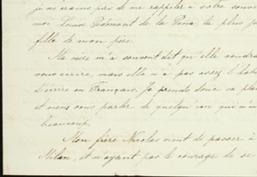 je n'ai pas de me rappeler à votre souvenir
de la Pena, la plus
fille de mon père.
Ma mère m'a souvent dit qu'elle voudrait
vous écrire, mais elle n'a pas assez l'habi
d'écrire en Français, je prends donc sa place
et viens vous parler de quelqu'un que m'a
beaucoup.
Mon frère Nicolas vient de passer à
Milan, et n'ayant pas le courage de se